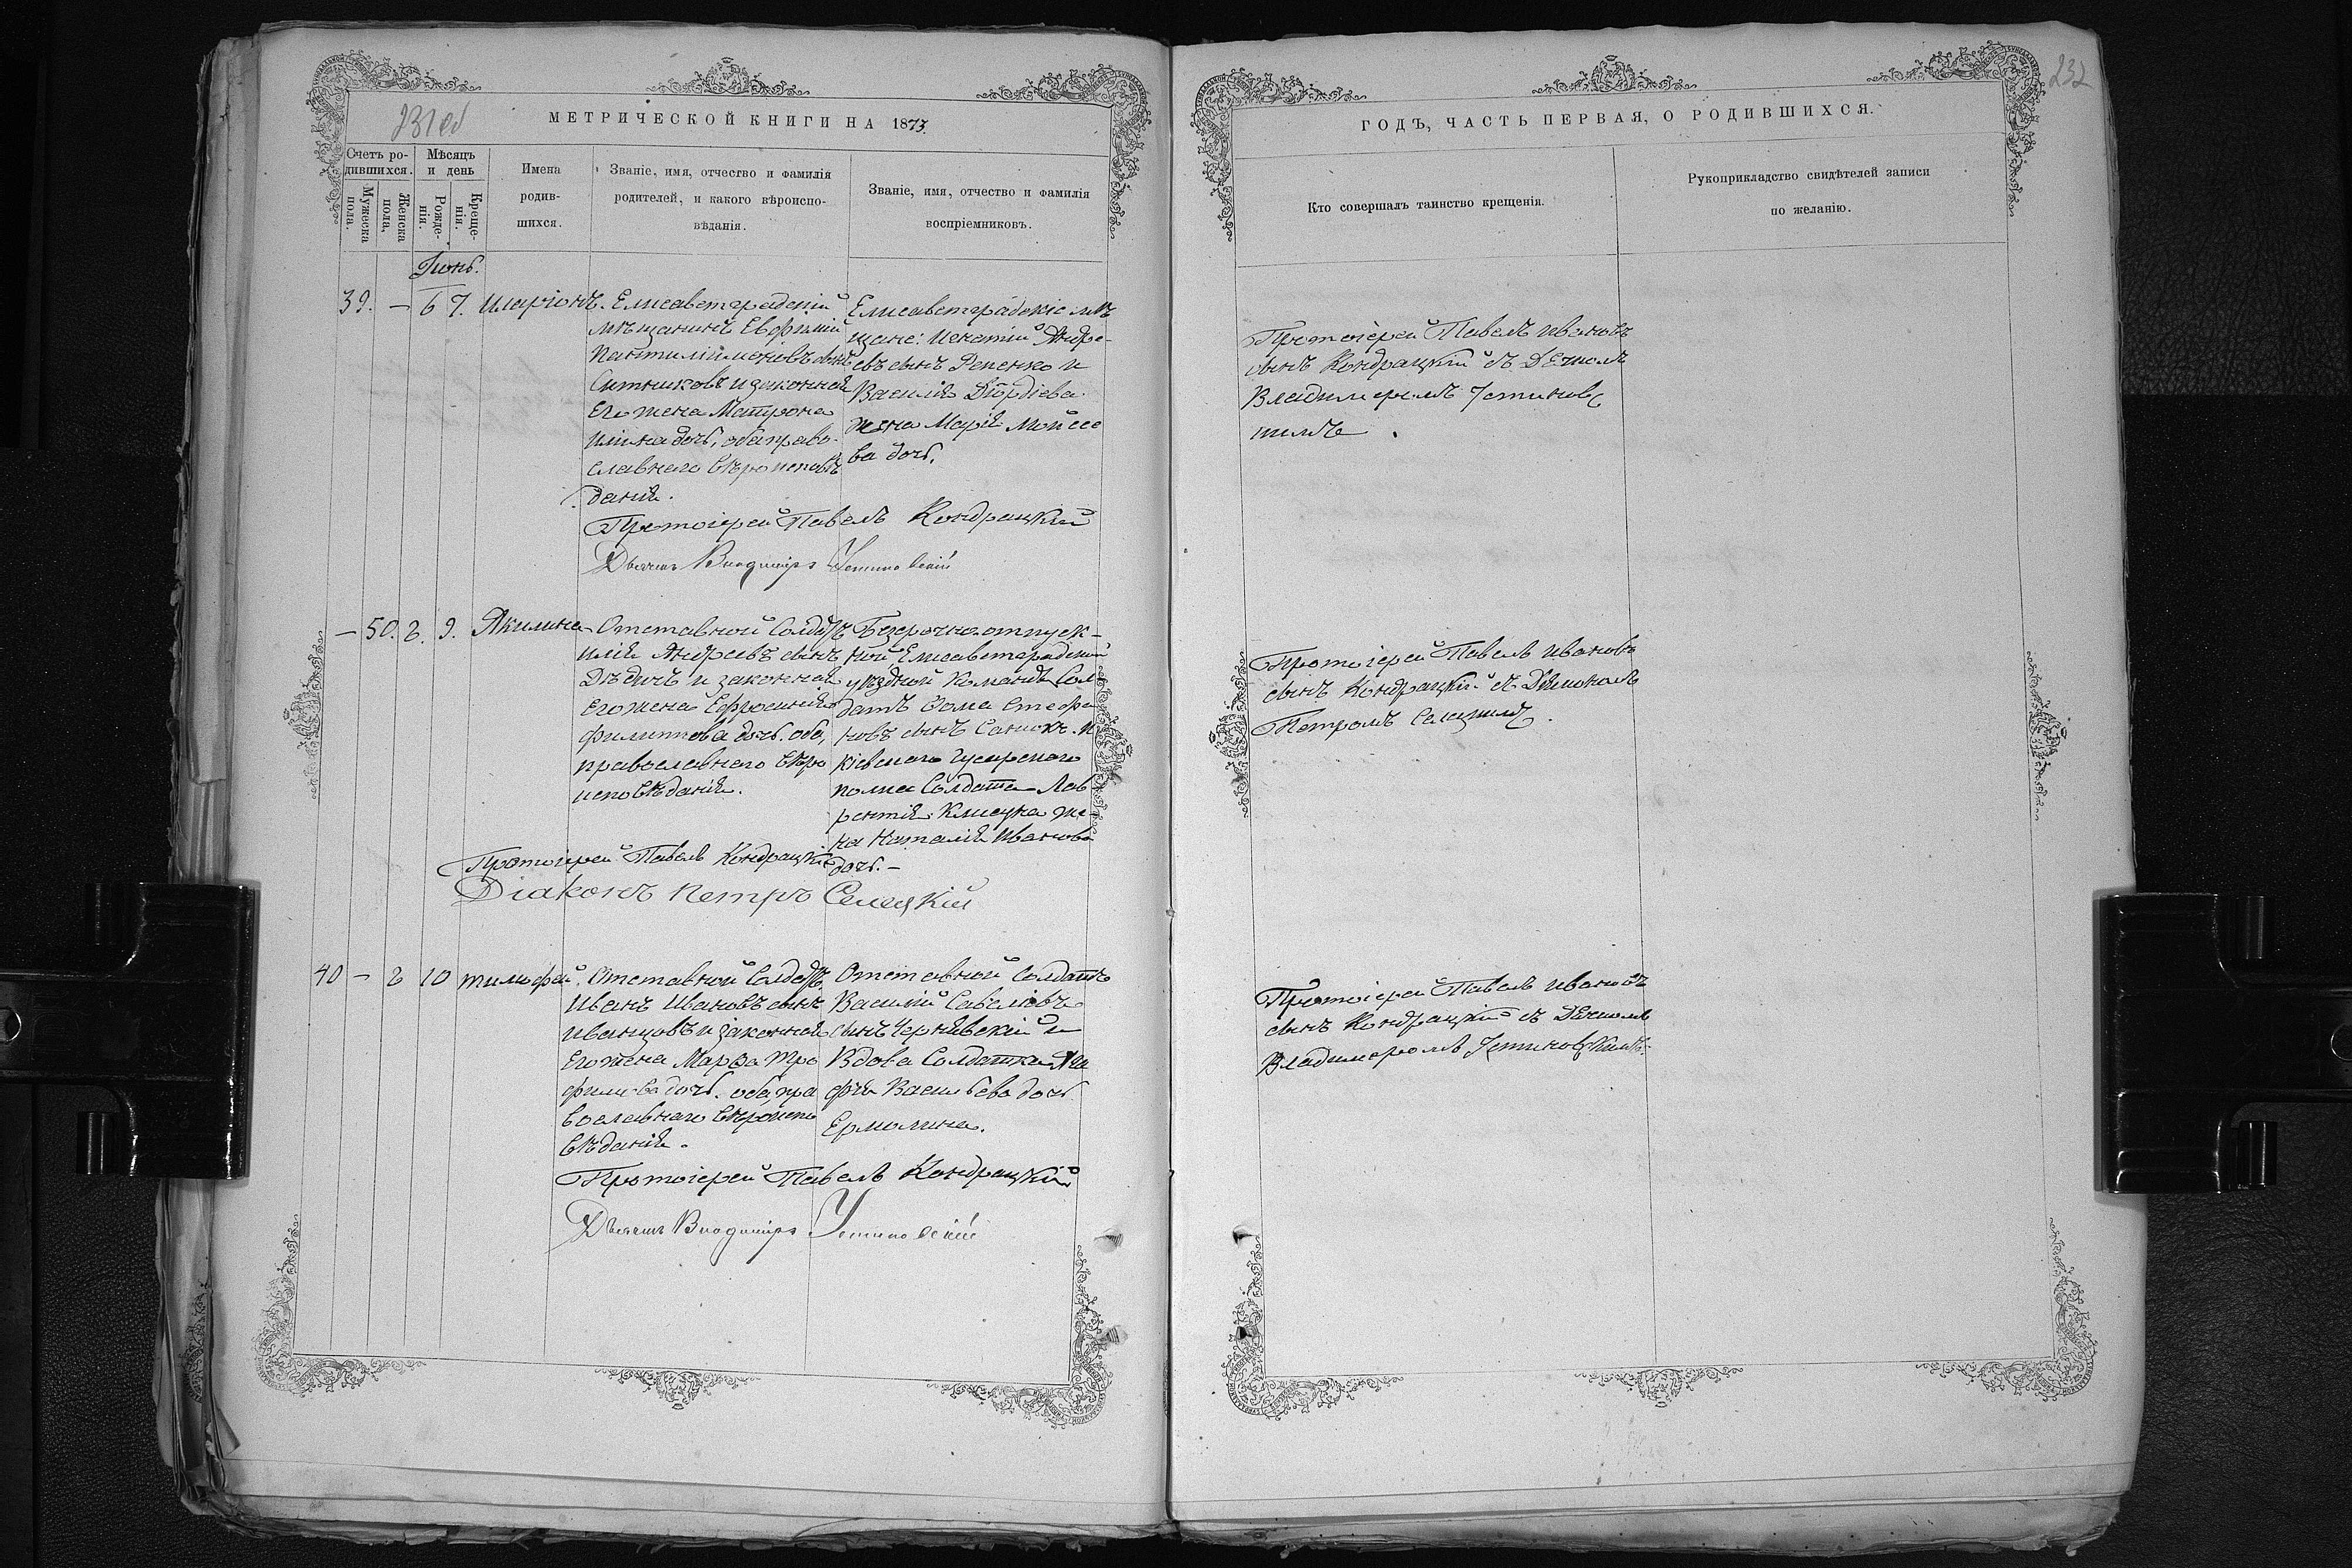 231 об
МЕТРИЧЕСКОЙ КНИГИ НА 1873.
Счетъ ро-
дившихся.
Мужеска
пола.
Женска
пола.
Мѣсяцъ
и день
Рожде-
нія.
Креще-
нія.
Имена
родив-
шихся.
Званіе, имя, отчество и фамилія
родителей, и какого вѣроиспо-
вѣданія.
Званіе, имя, отчество и фамилія
воспріемниковъ.
Іюнь.
39. — 6 7. Иларіонъ.
Елисаветградскій
мѣщанинъ Евфимій
Пантилiимоновъ сынъ
Ситниковъ и законная
Его жена Матрона
Ильина дочь, оба право-
славнаго вѣроисповѣ
данія.
Елисаветградскіе мѣ
щане: Игнатій Андре-
евъ сынъ Репенко и
Василія Дiордіева
жена Марія Мойсее
ва дочь.
Протоіерей Павелъ Кондрацкій
Дьячекъ Владиміръ Устиновскій
— 50. 8. 9. Акилина
Отставной Солдатъ
Илія Андреевъ сынъ
Дѣдичъ и законная
Его жена Ефросинія
Филиппова дочь. оба,
православнаго вѣро
исповѣданія.
Безсрочно отпуск-
ной Елисаветградской
уѣздной Команды Сол
датъ Ѳома Стефа
новъ сынъ и
Кіевскаго Гусарскаго
полка Солдата Лав
рентія же-
на Наталія Иванова
дочь.—
Протоіерей Павелъ Кондрацкій
Діаконъ Петръ Селецкій
40 — 8 10 Тимофей.
Отставной Солдатъ
Иванъ Ивановъ сынъ
Иванцовъ и законная
Его жена Марѳа Тро
фимова дочь. оба, пра
вославнаго вѣроиспо
вѣданія.
Отставной Солдатъ
Василій Савеліовъ
сынъ Чернявскій и
Вдова Солдатка Ага
фія Васильева дочь
Ермолина.
Протоіерей Павелъ Кондрацкій
Дьячекъ Владиміръ Устиновскій
232
ГОДЪ, ЧАСТЬ ПЕРВАЯ, О РОДИВШИХСЯ.
Кто совершалъ таинство крещенія.
Рукоприкладство свидѣтелей записи
по желанію.
Протоіерей Павелъ Ивановъ
сынъ Кондрацкій съ Дьячкомъ
Владимиромъ Устиновс
кимъ.
Протоіерей Павелъ Ивановъ
сынъ Кондрацкій съ Діакономъ
Петромъ Селецкимъ.
Протоіерей Павелъ Ивановъ
сынъ Кондрацкій съ Дьячкомъ
Владимиромъ Устиновскимъ.